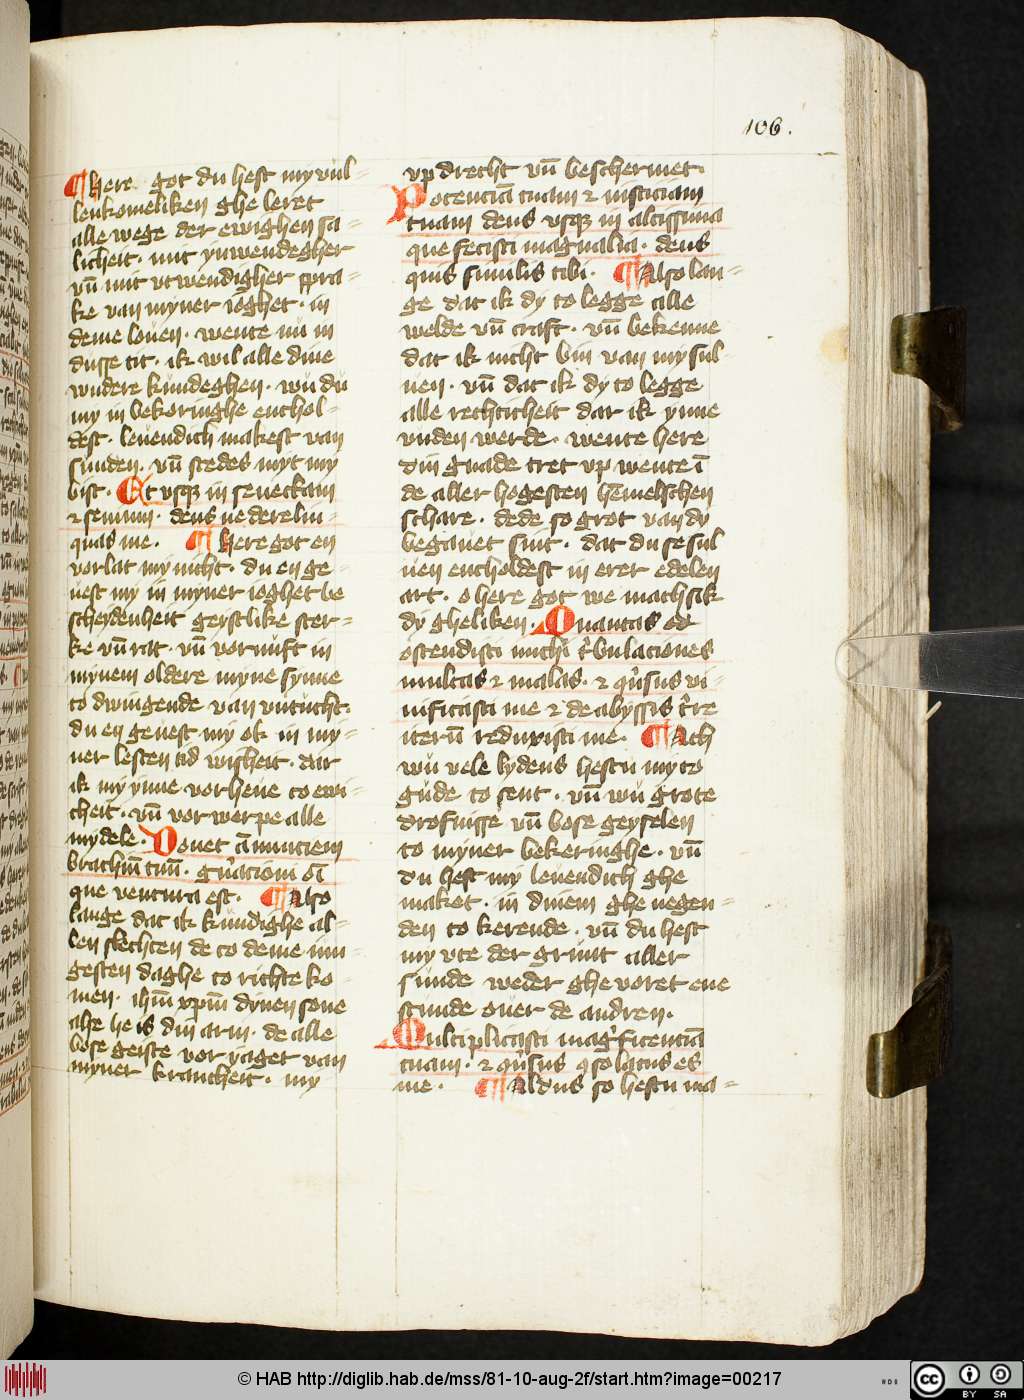 106.
¶ here got du hest my vul-
lenkomeliken ghe leret
alle wege der ewighen sa-
licheit. mit ynwendegher
vn̄ mit vtwendigher spra-
ke van myner ioghet. in
deme louen. wente nu in
dusse tit. ik wil alle dine
wudere kundeghen. wu du
my in bekoringhe enthol-
dest. leuendich makest van
sunden. vn̄ stedes myt my
bist. Et vsqꝫ in senectam
⁊ senium. deus ne derelin-
quas me. ¶ here got en
vorlat my nicht. du en ge-
uest my in myner ioghet be
scheydenheit geystlike ster-
ke vn̄ rat. vn̄ vornuft in
mynem oldere myne synne
to dwingende van vntucht.
du en geuest my ok in my-
ner lesten tid wisheit. dar
ik my ynne vorheue to ewi-
cheit. vn̄ vor werpe alle
mydele. Donec ānunciem
brachiū tuū. gn̄ationi oī
que ventura est. ¶ Also
lange dat ik kundighe al-
len slechten de to deme iun
gesten daghe to richte ko-
men. ihm̄ xpm̄ dynen sone
alse he is din arm. de alle
bose geiste vor yaget van
myner krancheit. my
vp drecht vn̄ beschermet.
Potenciā tuam ⁊ iusticiam
tuam deus vsqꝫ in altissima
que fecisti magnalia. deus
quis similis tibi. ¶ Also lan-
ge dat ik dy to legge alle
welde vn̄ craft. vn̄ bekenne
dat ik nicht bin van my sul-
uen. vn̄ dat ik dy to legge
alle rechticheit dar ik ynne
vnden werde. wente here
din gnade tret vp wente ī
de aller hogesten hemelschen
schare. dede so grot van dy
begauet sint. dat du se sul
uen entholdest in erer edelen
art. o here got we mach sik
dy gheliken. Quantas
ostendisti michi t'bulaciones
multas ⁊ malas. ⁊ 9u'sus vi-
uificasti me ⁊ de abyssis t're
iterū reduxisti me. ¶ Ach
wu vele lydens hestu my to
gude to sent. vn̄ wu grote
drofnisse vn̄ bose geyselen
to myner bekeringhe. vn̄
du hest my leuendich ghe
maket. in dinem ghe negen-
den to kerende. vn̄ du hest
my vte der grunt aller
sunde weder ghe voret ene
stunde ouer de andren.
Multiplicasti mag'ficenciā
tuam. ⁊ 9u'sus 9solatus es
me. ¶ Aldus so hestu ma-
© HAB http://diglib.hab.de/mss/81-10-aug-2f/start.htm?image=00217
HAB
cc BY SA